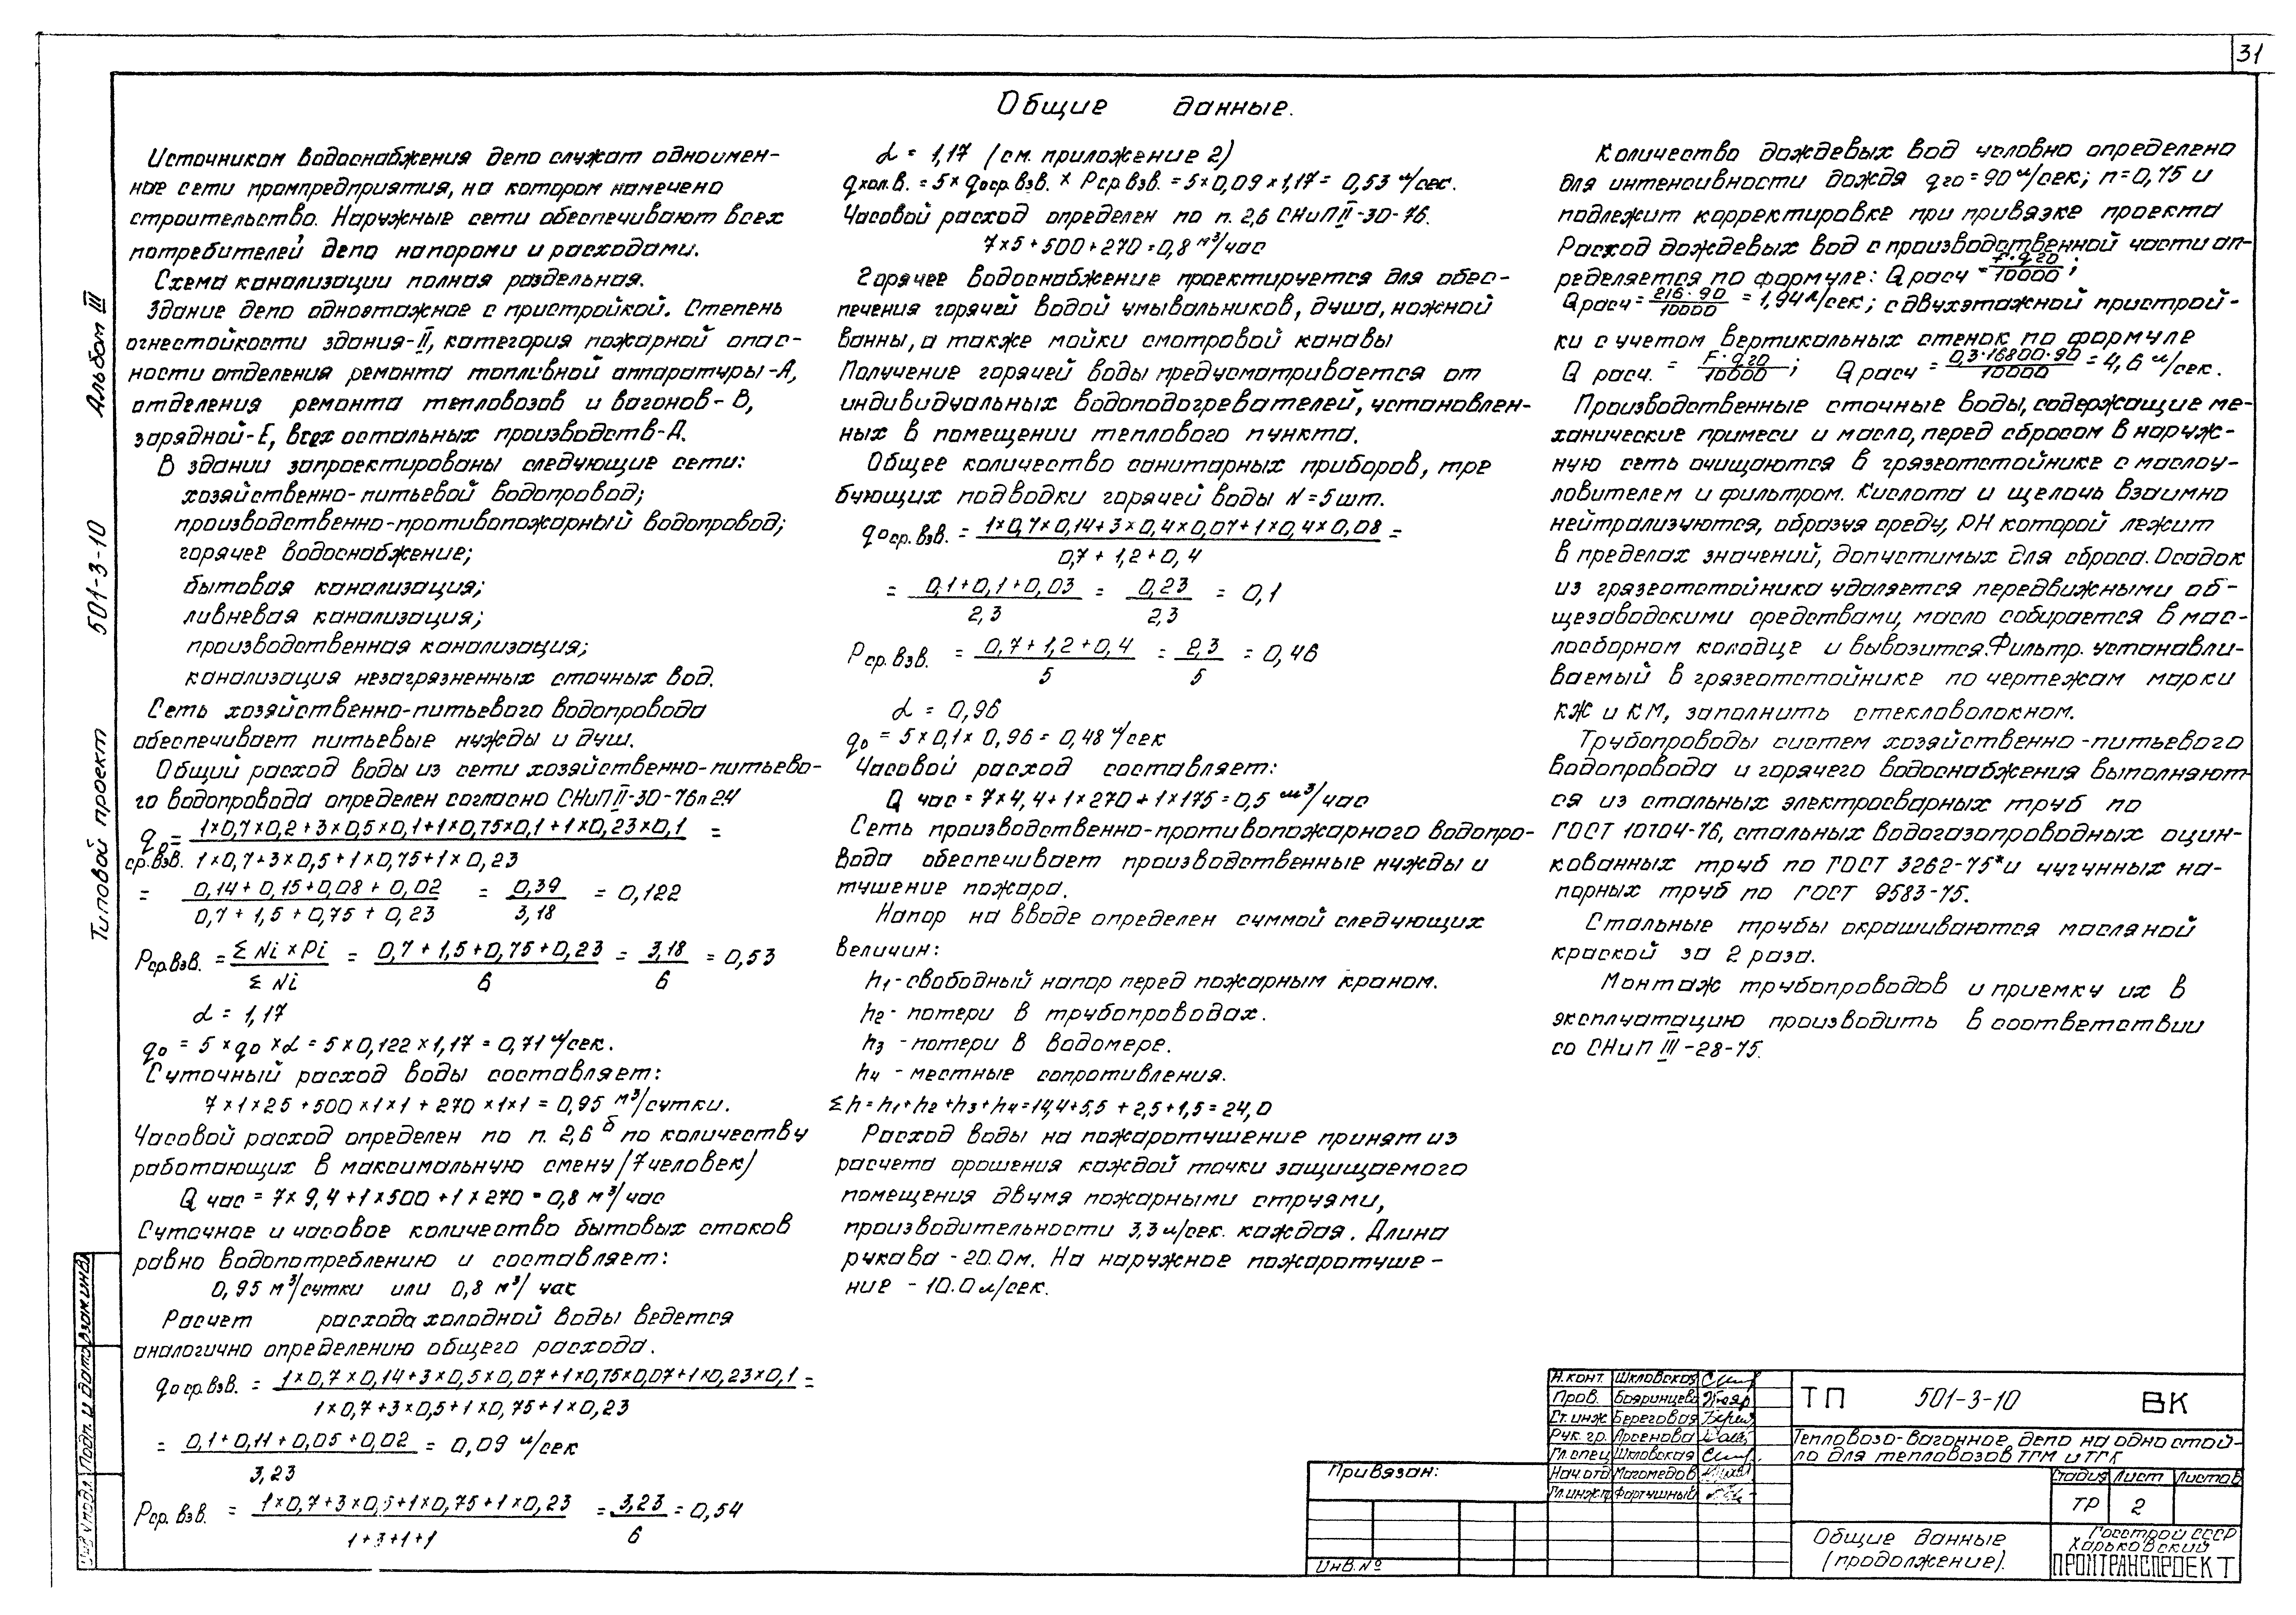 31
Общие данные.
Источником водоснабжения депо служат одноимен-
ные сети промпредприятия, на котором намечено
строительство. Наружные сети обеспечивают всех
потребителей депо напорами и расходами.
Схема канализации полная раздельная.
Здание депо одноэтажное с пристройкой. Степень
огнестойкости здания-II, категория пожарной опас-
ности отделения ремонта топливной аппаратуры-А,
отделения ремонта тепловозов и вагонов-В,
зарядной-Е, всех остальных производств-Д.
В здании запроектированы следующие сети:
хозяйственно-питьевой водопровод;
производственно-противопожарный водопровод;
горячее водоснабжение;
бытовая канализация;
ливневая канализация;
производственная канализация;
канализация незагрязненных сточных вод.
Сеть хозяйственно-питьевого водопровода
обеспечивает питьевые нужды и душ.
Общий расход воды из сети хозяйственно-питьево-
го водопровода определен согласно СНиП II-30-76 п 2.4
q₀ ср.взв. = (1×0,7×0,2+3×0,5×0,1+1×0,75×0,1+1×0,23×0,1) / (1×0,7+3×0,5+1×0,75+1×0,23) =
= (0,14+0,15+0,08+0,02) / (0,7+1,5+0,75+0,23) = 0,39 / 3,18 = 0,122
Pср.взв. = Σ Ni × Pi / Σ Ni = (0,7+1,5+0,75+0,23) / 6 = 3,18 / 6 = 0,53
α = 1,17
q₀ = 5 × q₀ × α = 5×0,122×1,17 = 0,71 л/сек.
Суточный расход воды составляет:
7×1×25+500×1×1+270×1×1 = 0,95 м³/сутки.
Часовой расход определен по п. 2,6 б по количеству
работающих в максимальную смену (7 человек)
Q час = 7×9,4+1×500+1×270 = 0,8 м³/час
Суточное и часовое количество бытовых стоков
равно водопотреблению и составляет:
0,95 м³/сутки или 0,8 м³/час
Расчет расхода холодной воды ведется
аналогично определению общего расхода.
q₀ ср.взв. = (1×0,7×0,14+3×0,5×0,07+1×0,75×0,07+1×0,23×0,1) / (1×0,7+3×0,5+1×0,75+1×0,23) =
= (0,1+0,11+0,05+0,02) / 3,23 = 0,09 л/сек
Pср.взв. = (1×0,7+3×0,5+1×0,75+1×0,23) / (1+3+1+1) = 3,23 / 6 = 0,54
α = 1,17 (см. приложение 2)
qхол.в. = 5× q₀ср.взв. × Pср.взв. = 5×0,09×1,17 = 0,53 л/сек.
Часовой расход определен по п. 2,6 СНиП II-30-76.
7×5+500+270=0,8 м³/час
Горячее водоснабжение проектируется для обес-
печения горячей водой умывальников, душа, ножной
ванны, а также мойки смотровой канавы
Получение горячей воды предусматривается от
индивидуальных водоподогревателей, установлен-
ных в помещении теплового пункта.
Общее количество санитарных приборов, тре
бующих подводки горячей воды N=5 шт.
q₀ср.взв. = (1×0,7×0,14+3×0,4×0,07+1×0,4×0,08) / (0,7+1,2+0,4) =
= (0,1+0,1+0,03) / 2,3 = 0,23 / 2,3 = 0,1
Pср.взв. = (0,7+1,2+0,4) / 5 = 2,3 / 5 = 0,46
α = 0,96
q₀ = 5×0,1×0,96 = 0,48 л/сек
Часовой расход составляет:
Q час = 7×4,4+1×270+1×175 = 0,5 м³/час
Сеть производственно-противопожарного водопро-
вода обеспечивает производственные нужды и
тушение пожара.
Напор на вводе определен суммой следующих
величин:
h1-свободный напор перед пожарным краном.
h2-потери в трубопроводах.
h3-потери в водомере.
h4-местные сопротивления.
Σh=h1+h2+h3+h4=14,4+5,5+2,5+1,5=24,0
Расход воды на пожаротушение принят из
расчета орошения каждой точки защищаемого
помещения двумя пожарными струями,
производительности 3,3 л/сек. каждая. Длина
рукава - 20.0м. На наружное пожаротуше-
ние - 10.0 л/сек.
Количество дождевых вод условно определено
для интенсивности дождя q20=90 л/сек; n=0,75 и
подлежит корректировке при привязке проекта
Расход дождевых вод с производственной части оп-
ределяется по формуле: Q расч = F·q20 / 10000;
Qрасч = 216·90 / 10000 = 1,94 л/сек; с двухэтажной пристрой-
ки с учетом вертикальных стенок по формуле
Q расч. = F·q20 / 10000; Q расч = 0,3·16800·90 / 10000 = 4,6 л/сек.
Производственные сточные воды, содержащие ме-
ханические примеси и масло, перед сбросом в наруж-
ную сеть очищаются в грязеотстойнике с маслоу-
ловителем и фильтром. Кислота и щелочь взаимно
нейтрализуются, образуя среду, РН которой лежит
в пределах значений, допустимых для сброса. Осадок
из грязеотстойника удаляется передвижными об-
щезаводскими средствами, масло собирается в мас-
лосборном колодце и вывозится. Фильтр. устанавли-
ваемый в грязеотстойнике по чертежам марки
КЖ и КМ, заполнить стекловолокном.
Трубопроводы систем хозяйственно-питьевого
водопровода и горячего водоснабжения выполняют-
ся из стальных электросварных труб по
ГОСТ 10704-76, стальных водогазопроводных оцин-
кованных труб по ГОСТ 3262-75* и чугунных на-
порных труб по ГОСТ 9583-75.
Стальные трубы окрашиваются масляной
краской за 2 раза.
Монтаж трубопроводов и приемку их в
эксплуатацию производить в соответствии
со СНиП III-28-75.
Альбом III
501-3-10
Типовой проект
Взам инв
Подп. и дата
Инв № подл
Привязан:
Инв. №
Н.конт. Шкловская
Пров. Бояринцева
Ст.инж Береговая
Рук. гр. Арсенова
Гл.спец Шкловская
Нач.отд Магомедов
Гл.инж.п Фартушный
ТП 501-3-10 ВК
Тепловозо-вагонное депо на одно стой-
ло для тепловозов ТГМ и ТГК
Стадия Лист Листов
ТР 2
Общие данные
(продолжение).
Госстрой СССР
Харьковский
ПРОМТРАНСПРОЕКТ